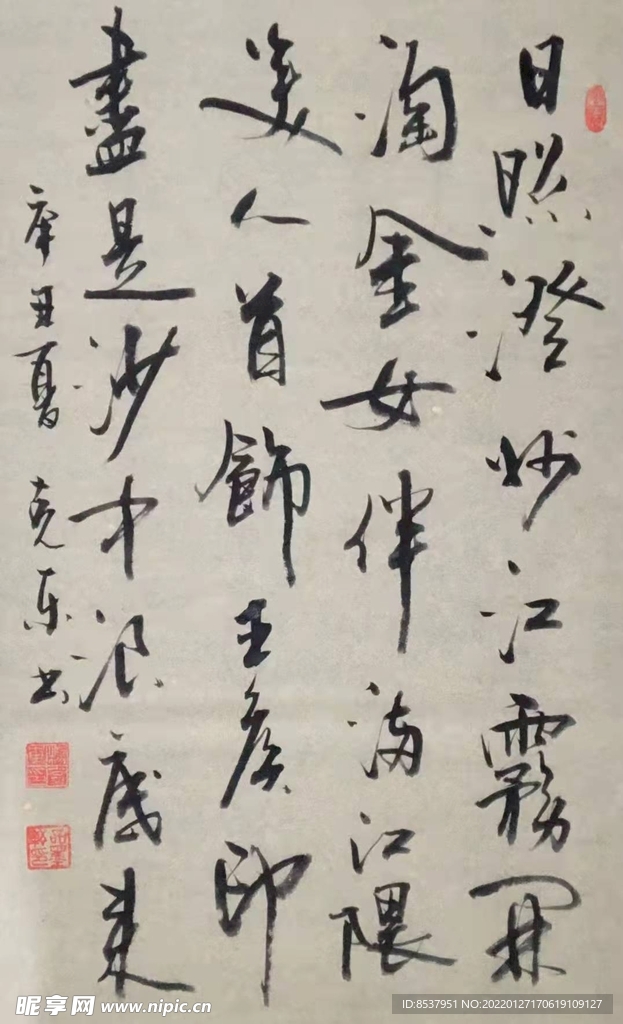 日照澄妙江霧開
淘金女伴满江隈
美人首飾王侯印
盡是沙中浪底来
辛丑夏 克东书
昵享网 www.nipic.cn
ID:8537951 NO:20220127170619109127